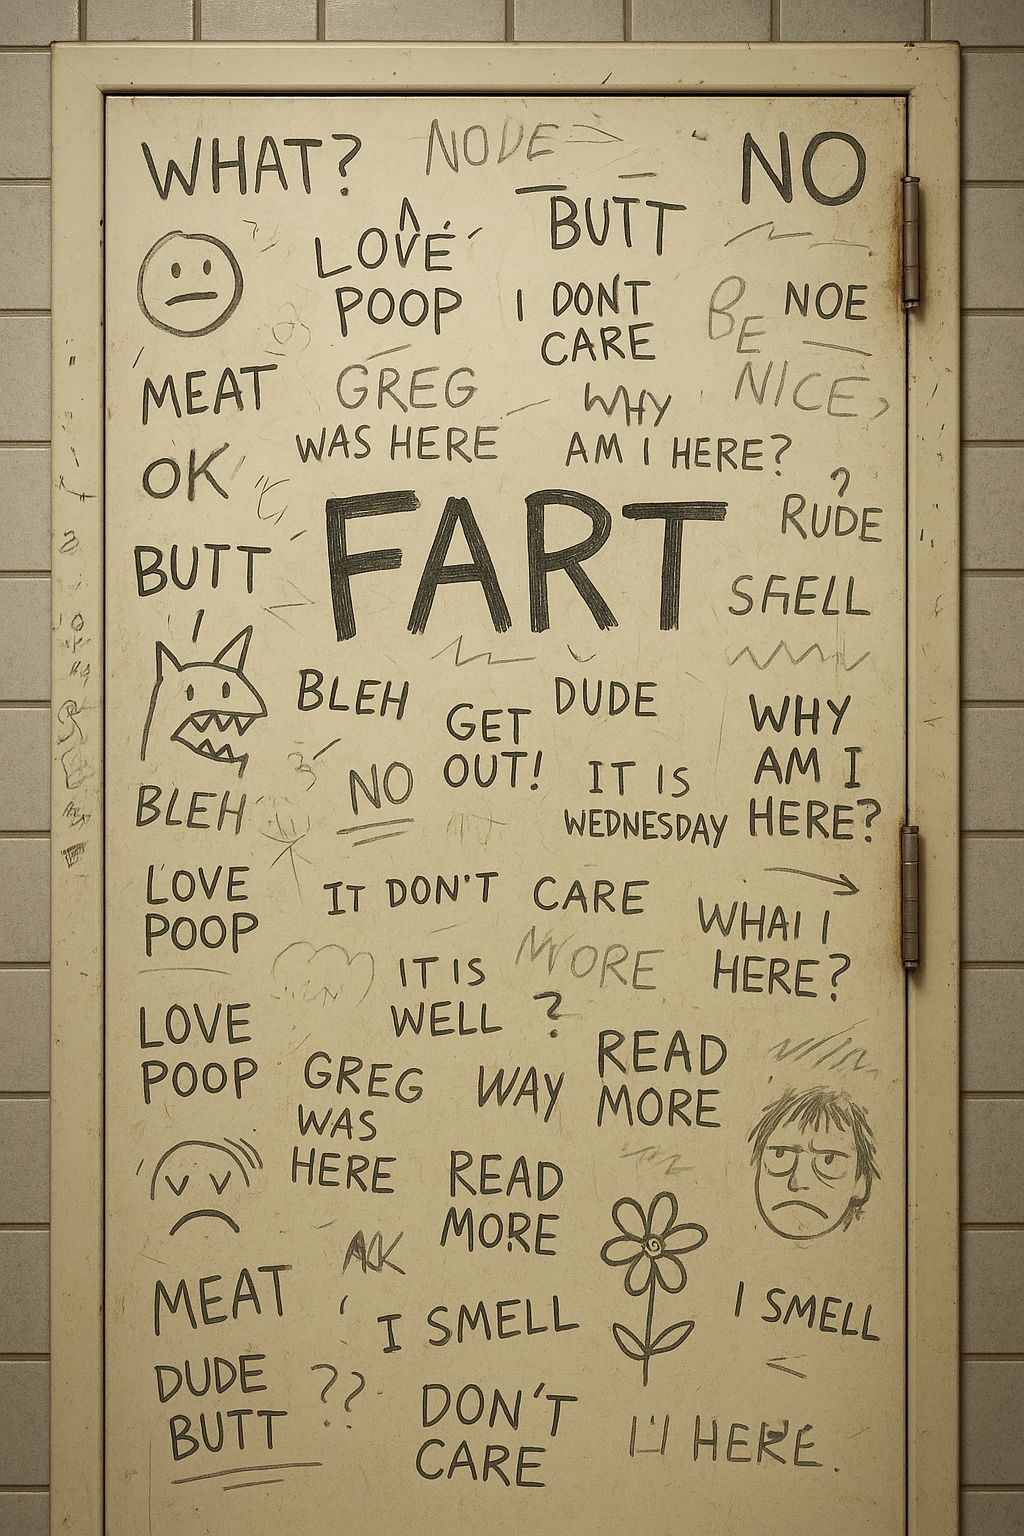 WHAT?
NO
LOVE
POOP
BUTT
I DONT
CARE
BE
NICE
NOE
MEAT
GREG
WAS HERE
WHY
AM I HERE?
OK
FART
?
RUDE
BUTT
BLEH
DUDE
GET
OUT!
WHY
AM I
HERE?
NO
IT IS
WEDNESDAY
BLEH
LOVE
POOP
IT DON'T CARE
WHAI I
HERE?
IT IS
WELL ?
MORE
LOVE
POOP
GREG
WAS
HERE
WAY
READ
MORE
READ
MORE
MEAT
I SMELL
I SMELL
DUDE
BUTT
??
DON'T
CARE
HERE.